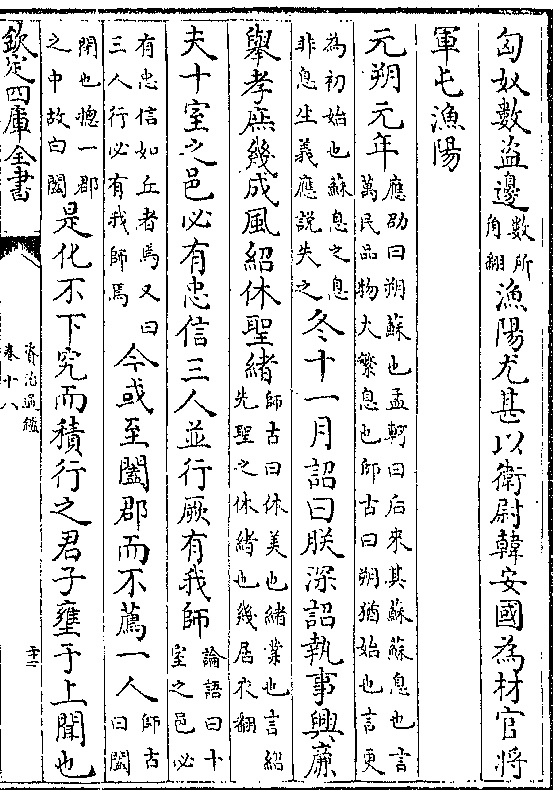 匈奴數盗邊數所角翻漁陽尤甚以衛尉韓安國為材官將
軍屯漁陽
元朔元年應劭曰朔蘇也孟軻曰后來其蘇蘇息也言萬民品物大繁息也師古曰朔猶始也言更
為初始也蘇息之息非息生義應説失之冬十一月詔曰朕深詔執事興廉
舉孝庶幾成風紹休聖緒師古曰休美也緒業也言紹先聖之休緒也幾居衣翻
夫十室之邑必有忠信三人並行厥有我師論語曰十室之邑必
有忠信如丘者焉又曰三人行必有我師焉今或至闔郡而不薦一人師古曰闔
閉也總一郡之中故曰闔是化不下究而積行之君子壅于上聞也
欽定四庫全書
資治通鑑
卷十八